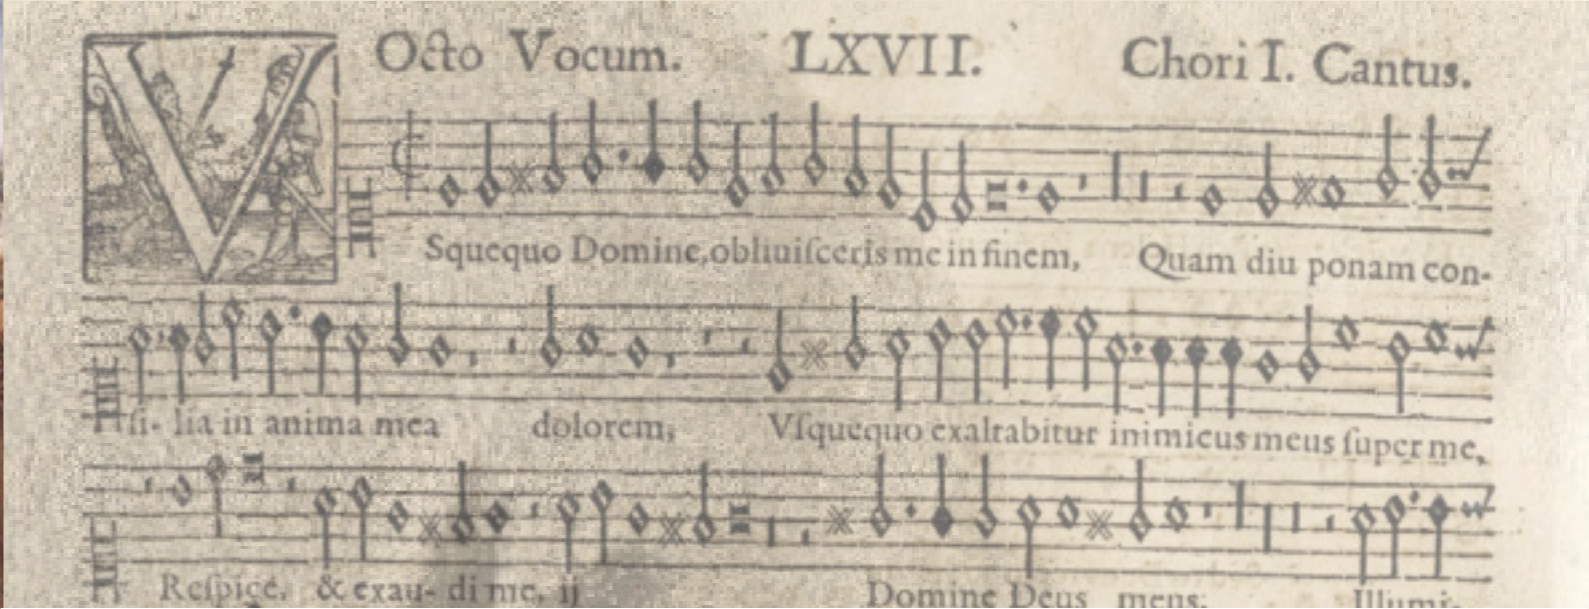 Octo Vocum. LXVII. Chori I. Cantus.
VSquequo Domine, obliuiſceris me in finem, Quam diu ponam con-
ſi- lia in anima mea dolorem, Vſquequo exaltabitur inimicus meus ſuper me,
Reſpice, & exau- di me, ij Domine Deus meus: Illumi-